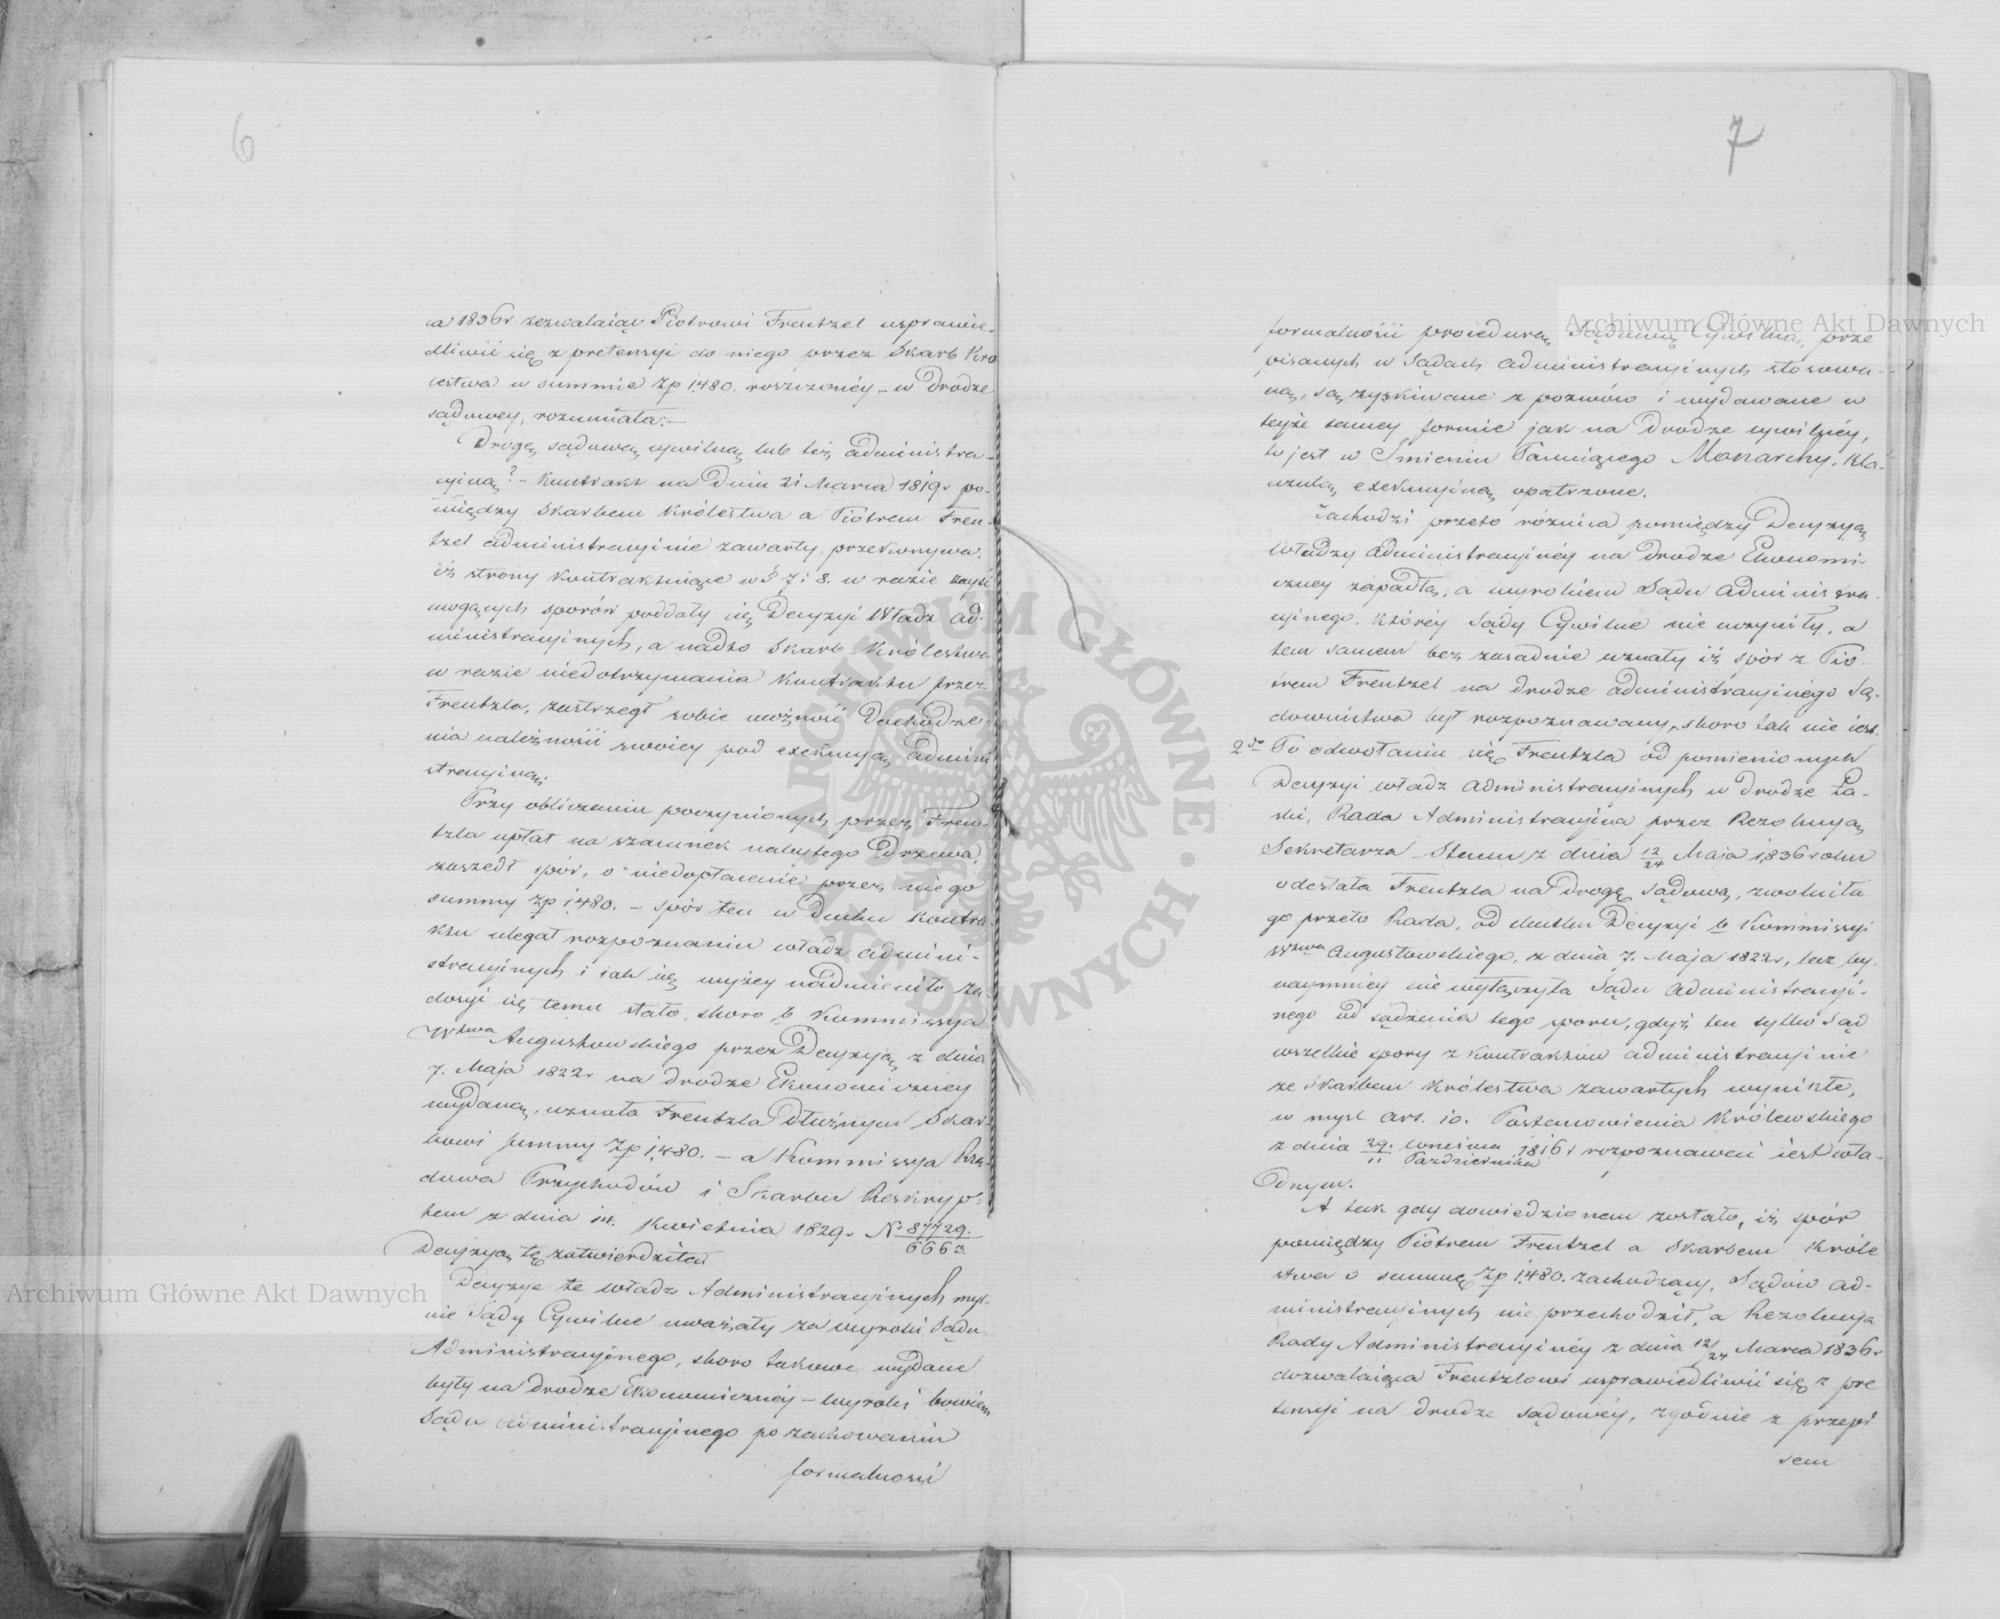 6
a 1836r zezwalaiąc Piotrowi Frentzel usprawie-
dliwić się z pretensyi do niego przez Skarb Kró
lestwa w summie Zp 1,480. roszczonéy – w drodze
sądowey, rozumiała:–
Drogę sądową cywilną lub też administra-
cyiną? – Kontrakt na dniu 21 Marca 1819r po-
między Skarbem Królestwa a Piotrem Fren-
tzel administracyinie zawarty, przekonywa,
iż strony kontraktuiące w § 7 i 8. w razie zayść
mogących sporów poddały się Decyzyi Władz Ad-
ministracyinych, a nadto Skarb Królestwa
w razie niedotrzymania kontraktu przez
Frentzla, zastrzegł sobie możność dochodze-
nia należności swoiey pod exekucyą admini
stracyiną.
Przy obliczeniu poczynionych przez Fren-
tzla opłat na szacunek nabytego Drzewa,
zaszedł spór, o niedopłacenie przez niego
summy Zp 1,480. – spór ten w duchu kontra-
ktu ulegał rozpoznaniu władz admini-
stracyinych i iak się wyżey nadmieniło za-
dosyć się temu stało, skoro b Kommissya
Wztwa Augustowskiego przez Decyzyą z dnia
7. Maja 1822r na drodze Ekonomiczney
wydaną, uznała Frentzla Dłużnym Skar-
bowi summy Zp 1,480. – a Kommissya Rzą-
dowa Przychodów i Skarbu Reskryp-
tem z dnia 14. Kwietnia 1829r No 87729./6663
Decyzyą tę zatwierdziła.
Decyzye te władz Administracyinych myl-
nie Sądy Cywilne uważały za wyroki Sądu
Administracyinego, skoro takowe wydane
były na drodze Ekonomicznéy – wyroki bowiem
Sądu administracyinego po zachowaniu
formalności
7
formalności procedurą Sądową Cywilną, prze
pisanych w Sądach administracyinych stosowa-
ną, są zyskiwane z pozwów i wydawane w
teyże samey formie jak na drodze cywilnéy,
to jest w Imieniu Panuiącego Monarchy, kla-
uzulą exekucyiną opatrzone.
Zachodzi przeto różnica pomiędzy Decyzyą
Władzy administracyinéy na drodze Ekonomi-
czney zapadłą, a wyrokiem Sądu administra-
cyinego. któréy Sądy Cywilne nie uczyniły, a
tem samem bez zasadnie uznały iż spór z Pio-
trem Frentzel na drodze administracyinégo Są-
downictwa był rozpoznawany, skoro tak nie iest.
2do Po odwołaniu się Frentzla od pomienionych
Decyzyi władz administracyinych w drodze Ła-
ski, Rada Administracyina przez Rezolucyą
Sekretarza Stanu z dnia 12/24 Maja 1836 roku
odesłała Frentzla na drogę sądową, zwolniła
go przeto Rada, od skutku Decyzyi b Kommissyi
Wztwa Augustowskiego, z dnia 7. Maja 1822r, lecz by-
naymniéy nie wyłączyła Sądu administracyi-
nego od sądzenia tego sporu, gdyż ten tylko Sąd
wszelkie spory z kontraktów administracyinie
ze Skarbem Królestwa zawartych wynikłe,
w myśl art. 10. Postanowienia Królewskiego
z dnia 29. Września/11 Października 1816r rozpoznawać iest wła-
dnym.
A tak gdy dowiedzionem zostało, iż spór
pomiędzy Piotrem Frentzel a Skarbem Króle
stwa o summę Zp 1,480. zachodzący, Sądów ad-
ministracyinych nie przechodził, a Rezolucya
Rady Administracyinéy z dnia 12/24 Marca 1836r
dozwalaiąca Frentzlowi usprawiedliwić się z pre
tensyi na drodze sądowéy, zgodnie z przepi
sem
Archiwum Główne Akt Dawnych
Archiwum Główne Akt Dawnych
ARCHIWUM GŁÓWNE AKT DAWNYCH